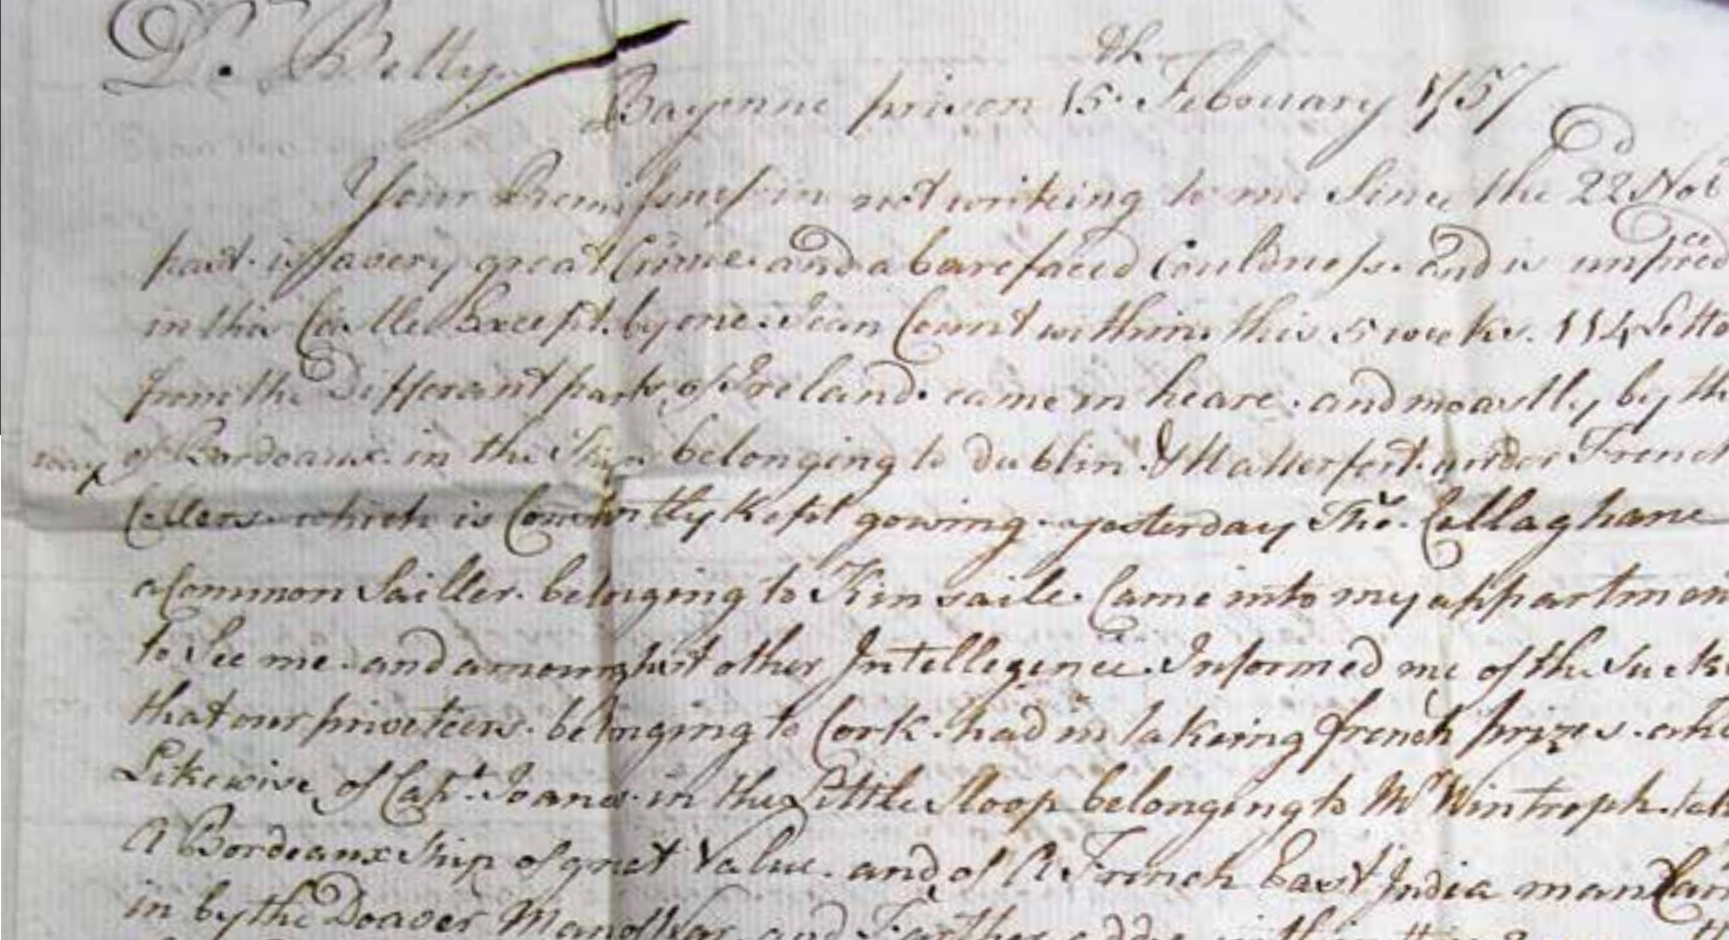 Dr. Betty
Bayonne prison 15th February 1757
Your Remissness in not writing to me Since the 22d Novr
past. is a very great Crime. and a barefaced Couldness. and is
in this Castle Except. by one. Jean Count within this 5 weeks. 114 Lette
from the Differant parts of Ireland. came in heare. and moastly by the
way of Bordeaux. in the Ships belonging to Dublin. & Watterfort. under French
Collers. which is Constantly Kept gowing. yesterday Tho. Callaghane
a Common Sailler. belonging to Kinsaile. Came into my appartmen
to See me. and amoungst other Intellegence. Informed me of the Suck
that our priveteers. belonging to Cork. had in takeing french prizes. and
Likewise of Capt. Joanes. in the Little Sloop belonging to Mr Wintroph. tak
A Bordeaux Ship of great Value. and of A French East India man
in by the Doaver Man of War. and Farther